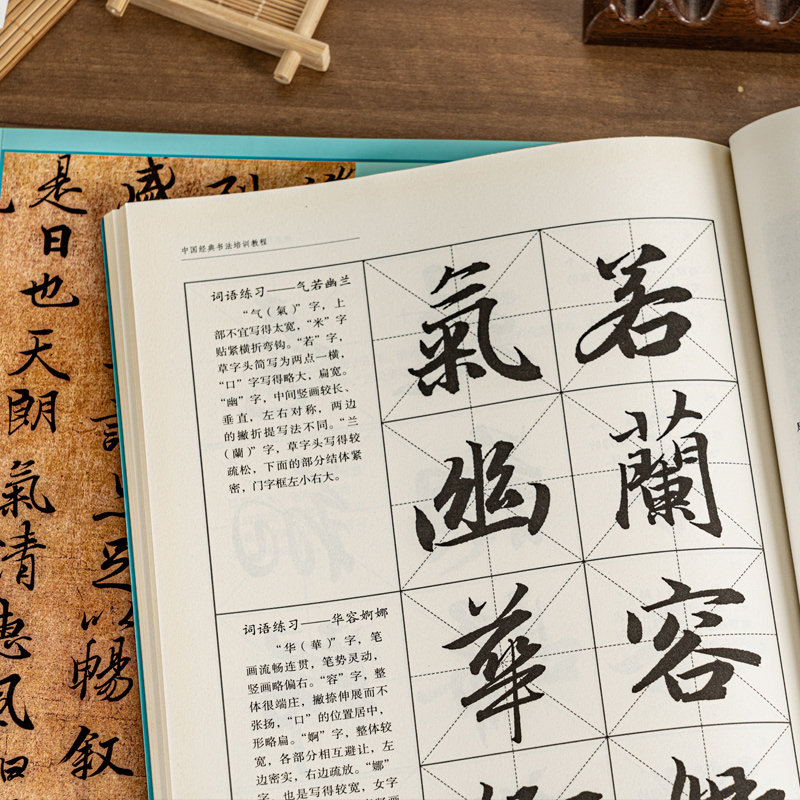 中国经典书法培训教程
词语练习——气若幽兰
“气（氣）”字，上
部不宜写得太宽，“米”字
贴紧横折弯钩。“若”字，
草字头简写为两点一横，
“口”字写得略大，扁宽。
“幽”字，中间竖画较长、
垂直，左右对称，两边
的撇折提写法不同。“兰
（蘭）”字，草字头写得较
疏松，下面的部分结体紧
密，门字框左小右大。
氣若
幽蘭
词语练习——华容婀娜
“华（華）”字，笔
画流畅连贯，笔势灵动，
竖画略偏右。“容”字，整
体很端庄，撇捺伸展而不
张扬，“口”的位置居中，
形略扁。“婀”字，整体较
宽，各部分相互避让，左
边密实，右边疏放。“娜”
字，也是写得较宽，女字
華容
暢叙
是日也天朗氣清惠风